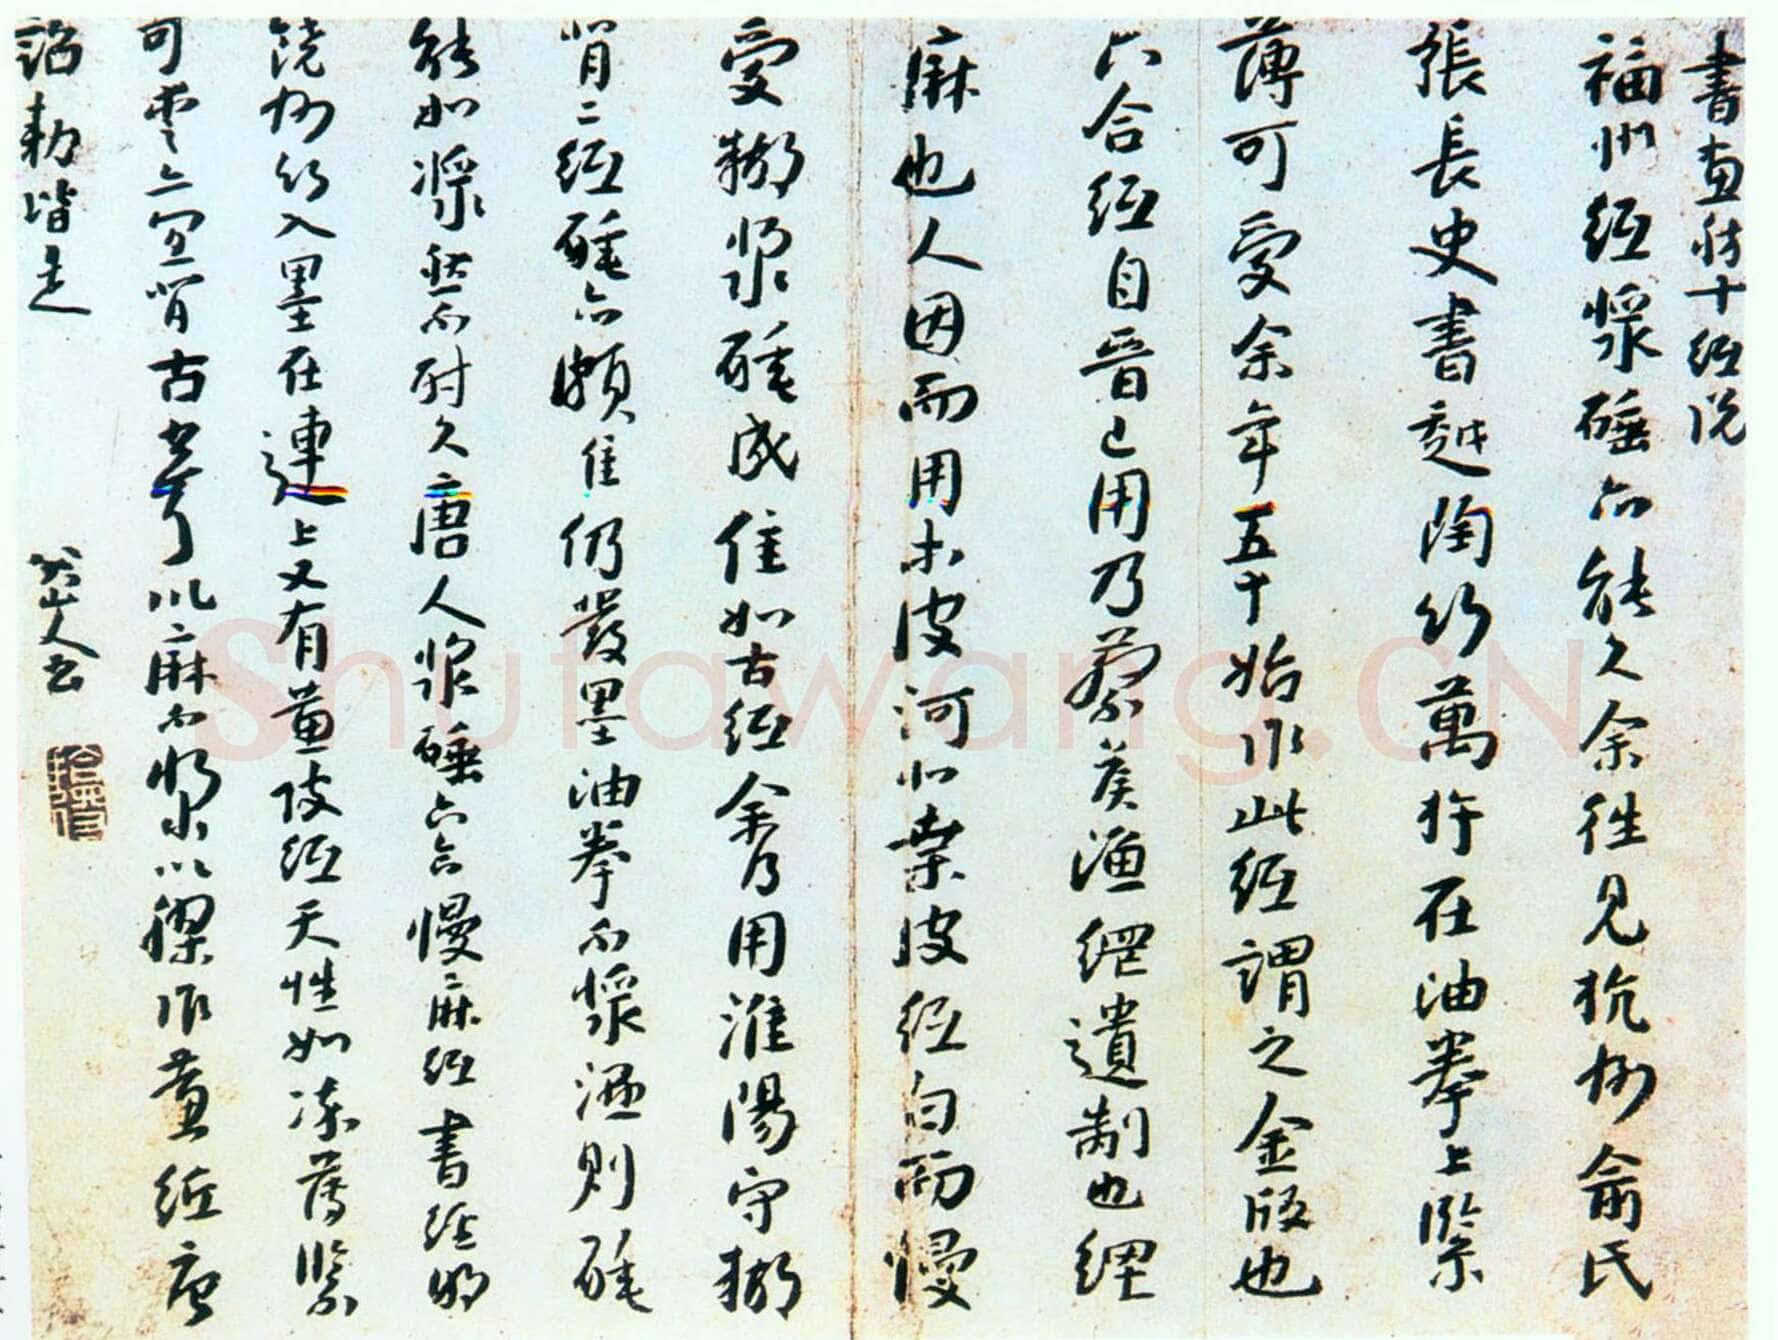 書畫舫十紙說
福州紙漿硾亦能久余往見杭州俞氏
張長史書越陶竹萬杵在油拳上緊
薄可愛余年五十始作此紙謂之金版也
六合紙自晉已用乃蔡侯漁網遺制也網
麻也人因而用木皮河北桑皮紙白而慢
愛糊漿硾成佳如古紙余乃用淮陽守糊
背二紙硾亦頗佳仍發墨油拳不漿濕則硾
能如漿然不耐久唐人漿硾六合慢麻紙書經明
饒州竹入墨在連上又有黃皮紙天性如漆薄緊
可愛亦宜背古書等以麻不漿以膠作黃紙唐
詔敕皆是
八大山人書
Shufawang.CN